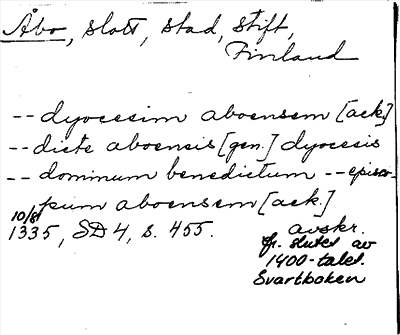 Åbo, slott, stad, stift,
Finland
-- dyocesim aboensem [ack]
-- dicte aboensis [gen.] dyocesis
-- dominum benedictum -- episco-
pum aboensem [ack.]
10/8 1335, SD 4, s. 455.
avskr.
fr. slutet av
1400-talet.
Svartboken